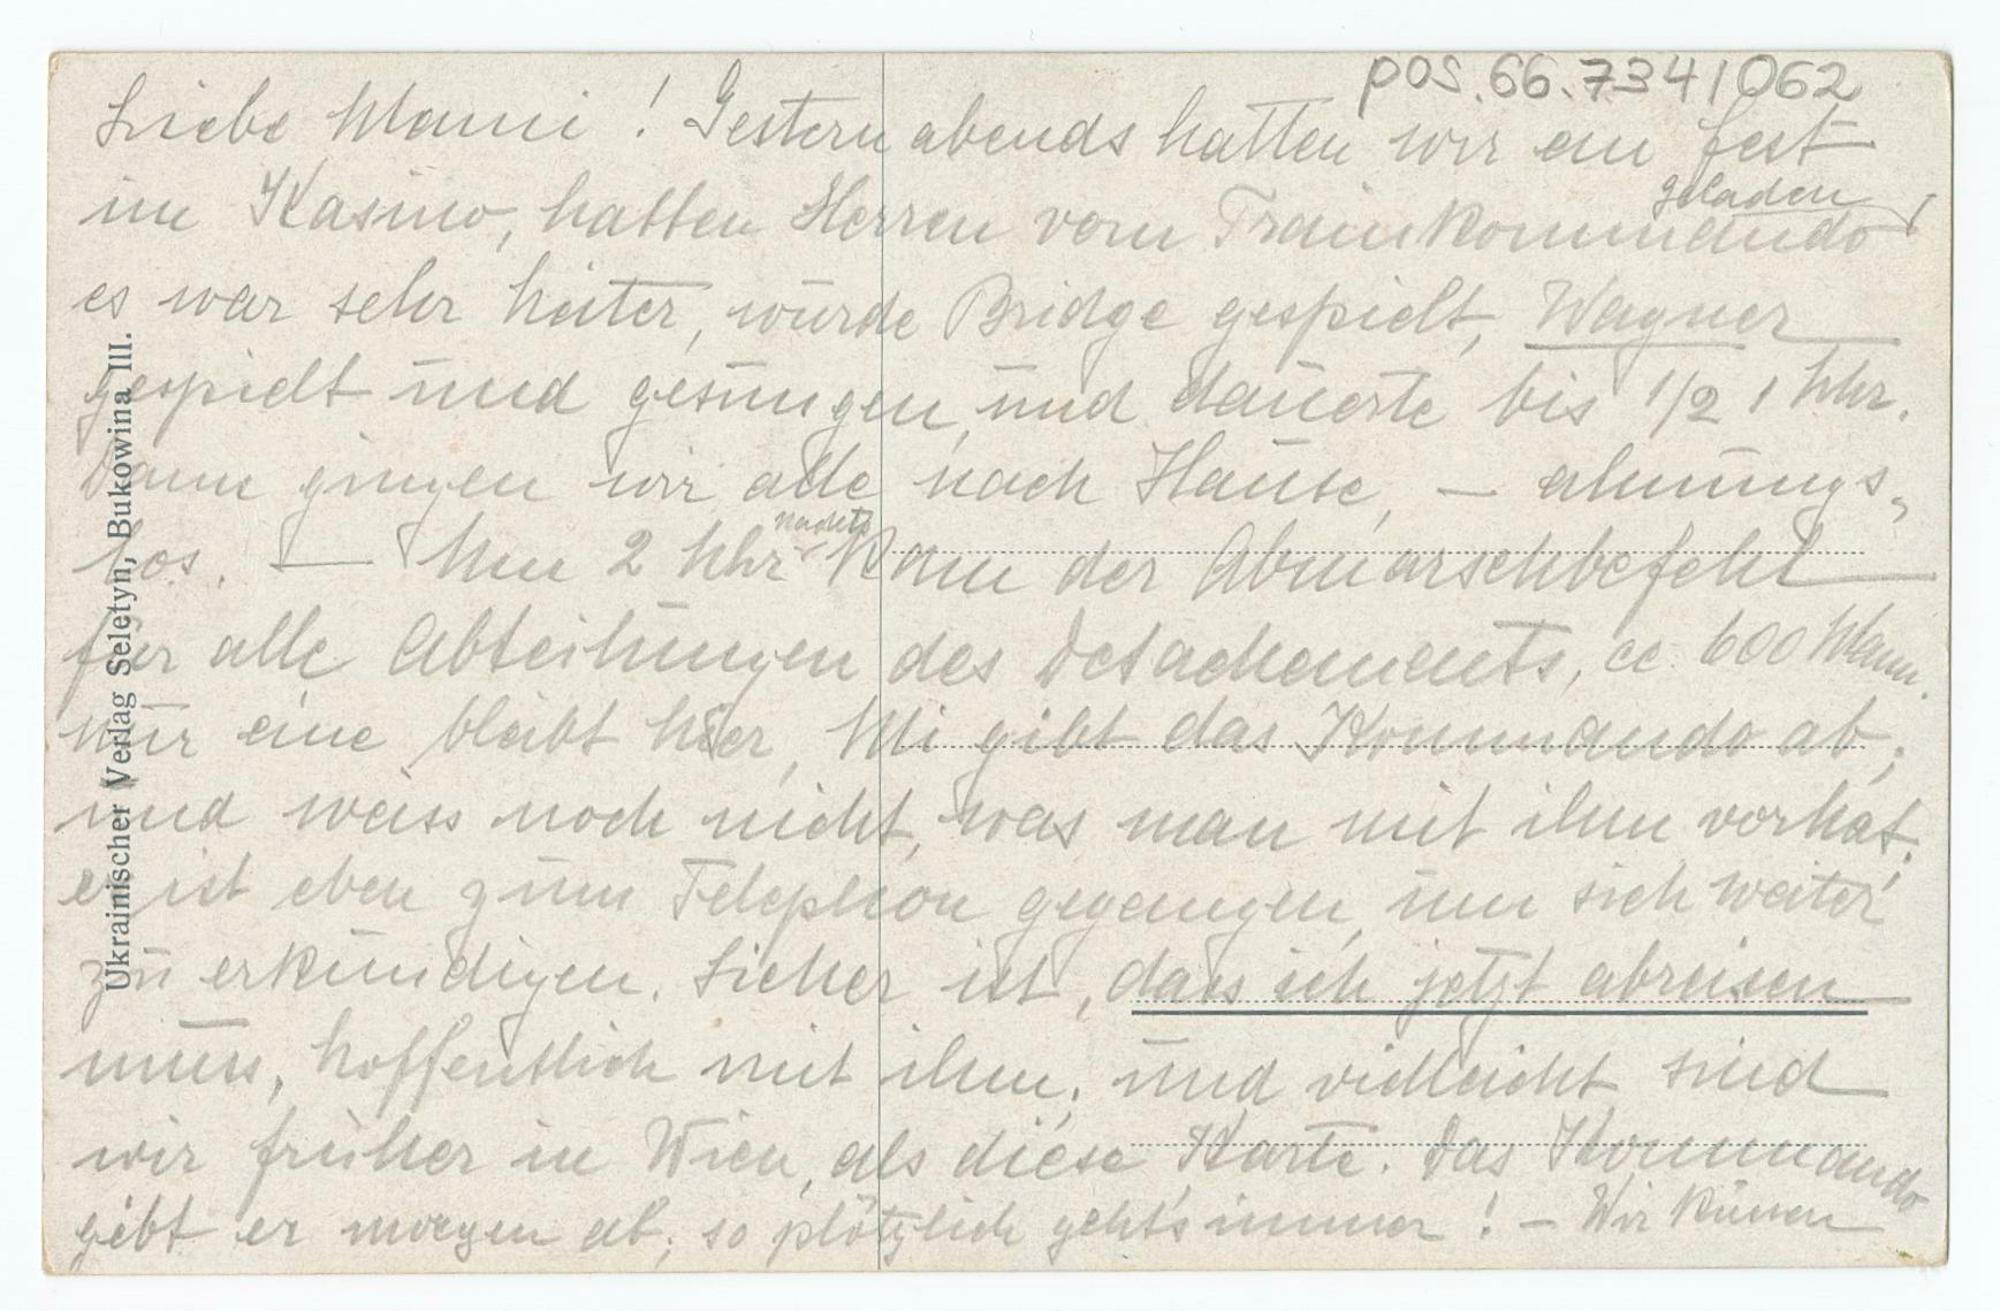 pos.66.7341062
Liebe Mami! Gestern abends hatten wir ein Fest
im Kasino, hatten Herren vom Trainkommando geladen,
es war sehr heiter, wurde Bridge gespielt, Wagner
gespielt und gesungen, und dauerte bis 1/2 1 Uhr.
Dann gingen wir alle nach Hause, – ahnungs-
los. – Um 2 Uhr nachts kam der Abmarschbefehl
für alle Abteilungen des Detachements, cc. 600 Mann.
nur eine bleibt hier, Mi gibt das Kommando ab,
und weiss noch nicht, was man mit ihm vorhat.
er ist eben zum Telephon gegangen, um sich weiter
zu erkundigen. Sicher ist, dass ich jetzt abreisen
muss, hoffentlich mit ihm, und vielleicht sind
wir früher in Wien, als diese Karte. Das Kommando
gibt er morgen ab, so plötzlich geht's immer! – Wir
Ukrainischer Verlag Seletyn, Bukowina III.